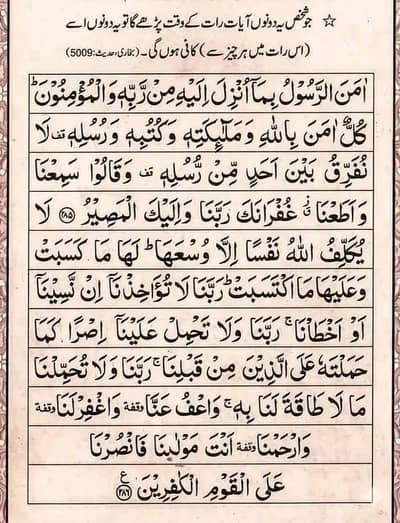 ☆ جو شخص یہ دونوں آیات رات کے وقت پڑھے گا تو یہ دونوں اسے
(اس رات میں ہر چیز سے) کافی ہوں گی۔ (بخاری، حدیث: 5009)
اٰمَنَ الرَّسُوْلُ بِمَاۤ اُنْزِلَ اِلَيْهِ مِنْ رَّبِّهٖ وَالْمُؤْمِنُوْنَ ؕ
كُلٌّ اٰمَنَ بِاللّٰهِ وَ مَلٰٓئِكَتِهٖ وَكُتُبِهٖ وَرُسُلِهٖ قف لَا
نُفَرِّقُ بَيْنَ اَحَدٍ مِّنْ رُّسُلِهٖ قف وَقَالُوْا سَمِعْنَا
وَ اَطَعْنَا ق غُفْرَانَكَ رَبَّنَا وَاِلَيْكَ الْمَصِيْرُ ﴿۲۸۵﴾ لَا
يُكَلِّفُ اللّٰهُ نَفْسًا اِلَّا وُسْعَهَا ؕ لَهَا مَا كَسَبَتْ
وَعَلَيْهَا مَا اكْتَسَبَتْ ؕ رَبَّنَا لَا تُؤَاخِذْنَاۤ اِنْ نَّسِيْنَاۤ
اَوْ اَخْطَاْنَا ۚ رَبَّنَا وَلَا تَحْمِلْ عَلَيْنَاۤ اِصْرًا كَمَا
حَمَلْتَهٗ عَلَى الَّذِيْنَ مِنْ قَبْلِنَا ۚ رَبَّنَا وَلَا تُحَمِّلْنَا
مَا لَا طَاقَةَ لَنَا بِهٖ ۚ وَاعْفُ عَنَّا وقفة وَاغْفِرْ لَنَا وقفة
وَارْحَمْنَا وقفة اَنْتَ مَوْلٰىنَا فَانْصُرْنَا
عَلَى الْقَوْمِ الْكٰفِرِيْنَ ﴿۲۸۶﴾ ع